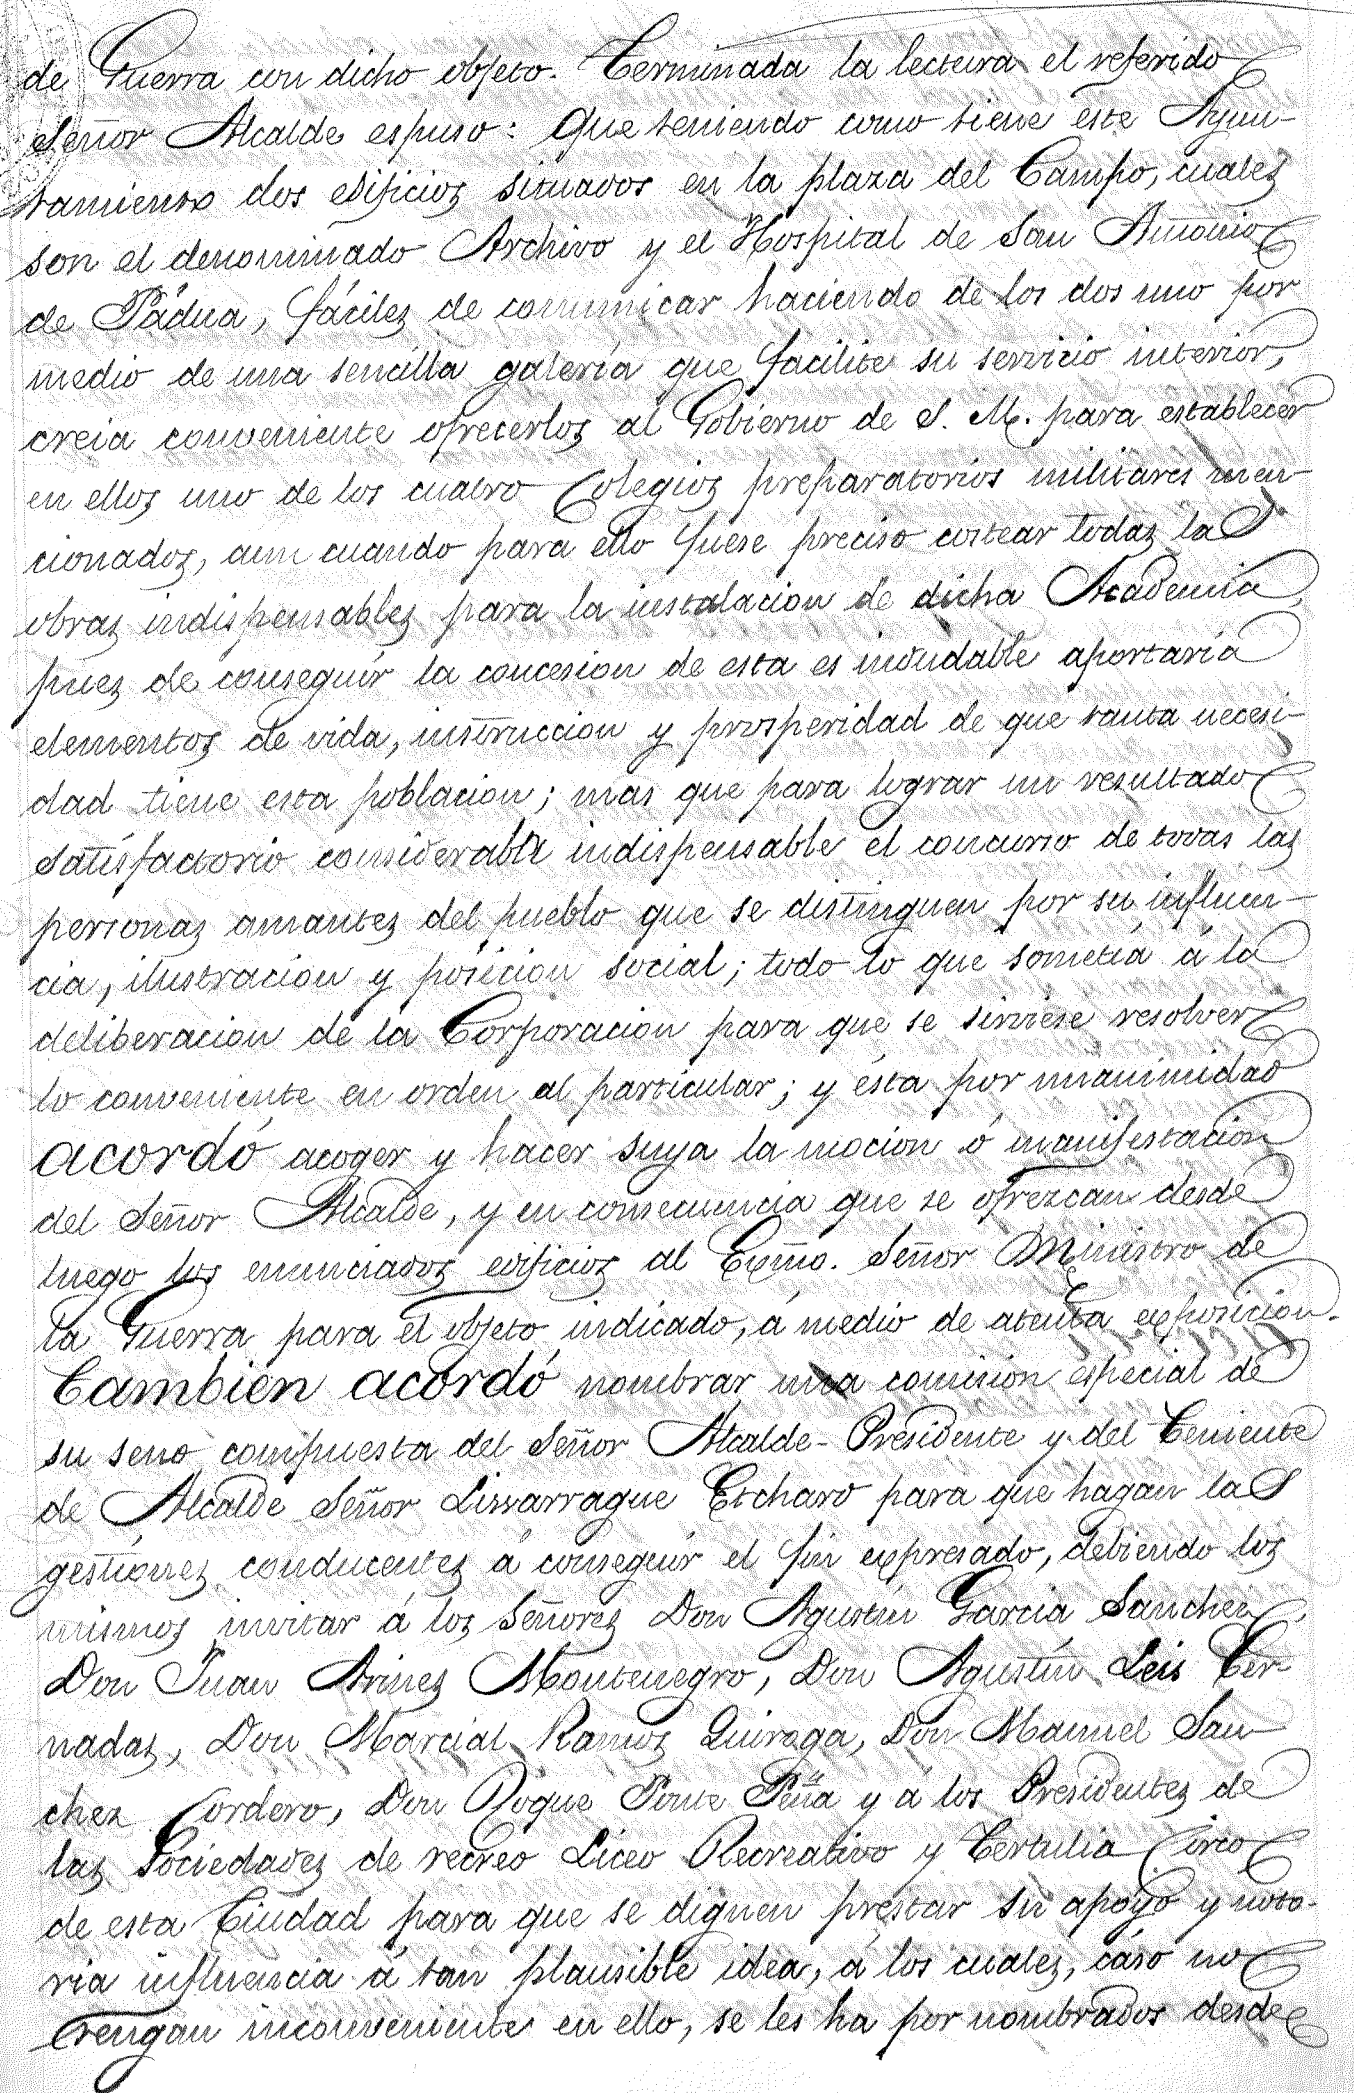 de Guerra con dicho objeto. Terminada la lectura el referido
Señor Alcalde espuso: Que teniendo como tiene este Ayun-
tamiento dos edificios situados en la plaza del Campo, cuales
son el denominado Archivo y el Hospital de San Antonio
de Pádua, fáciles de comunicar haciendo de los dos uno por
medio de una sencilla galería que facilite su servicio interior,
creia conveniente ofrecerlos al Gobierno de S. M. para establecer
en ellos uno de los cuatro Colegios preparatorios militares men-
cionados, aun cuando para ello fuese preciso costear todas las
obras indispensables para la instalacion de dicha Academia,
pues de conseguir la concesion de esta es indudable aportaría
elementos de vida, instruccion y prosperidad de que tanta necesi-
dad tiene esta poblacion; mas que para lograr un resultado
satisfactorio considerabla indispensable el concurso de todas las
personas amantes del pueblo que se distinguen por su influen-
cia, ilustracion y posicion social; todo lo que sometía á la
deliberacion de la Corporacion para que se sirviese resolver
lo conveniente en orden al particular; y ésta por unanimidad
acordó acoger y hacer suya la mocion ó manifestacion
del Señor Alcalde, y en consecuencia que se ofrezcan desde
luego los enunciados edificios al Exmo. Señor Ministro de
la Guerra para el objeto indicado, á medio de atenta exposicion.
Tambien acordó nombrar una comision especial de
su seno compuesta del Señor Alcalde-Presidente y del Teniente
de Alcalde Señor Lissarrague Etcharo para que hagan las
gestiones conducentes á conseguir el fin expresado, debiendo los
mismos invitar á los Señores Don Agustín Garcia Sanchez,
Don Juan Arines Montenegro, Don Agustín Leis Ber-
nadas, Don Marcial Ramos Quiroga, Don Manuel San-
chez Cordero, Don Roque Ponte Peña y á los Presidentes de
las Sociedades de recreo Liceo Recreativo y Tertulia Circo
de esta Ciudad para que se dignen prestar su apoyo y noto-
ria influencia á tan plausible idea, á los cuales, cáso no
tengan inconveniente en ello, se les ha por nombrados desde